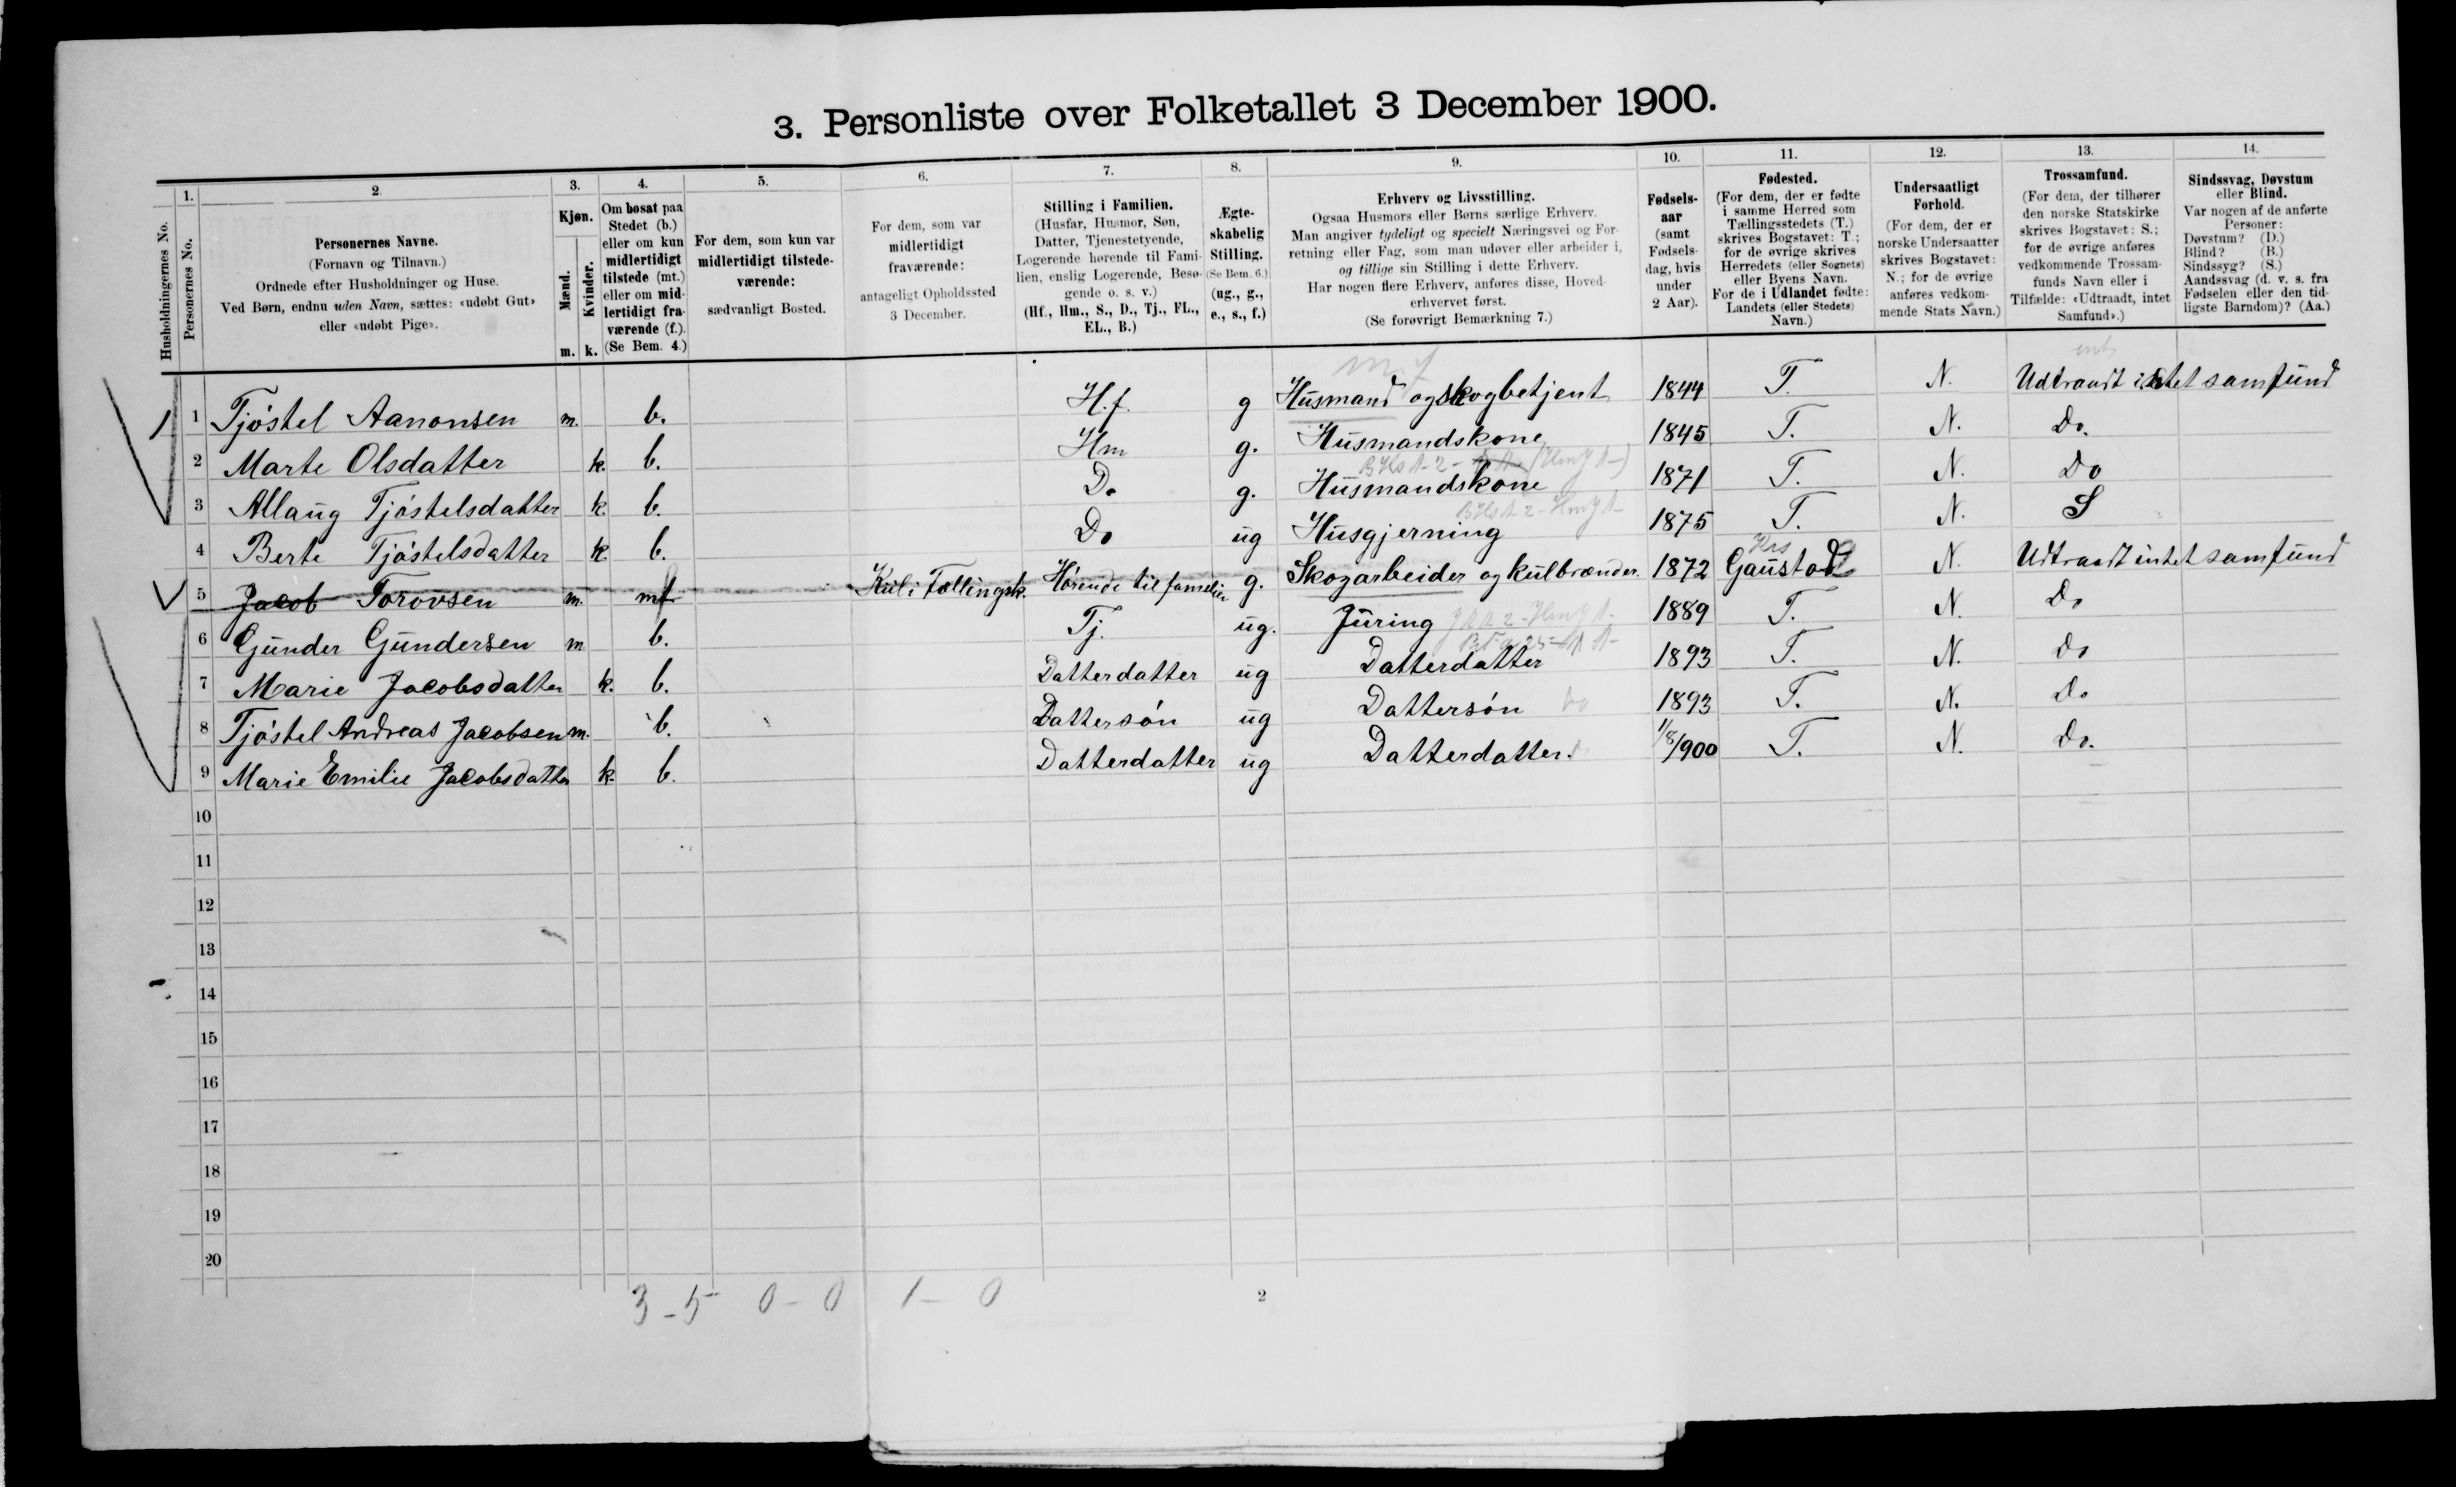 3. Personliste over Folketallet 3 December 1900.
1. 2. 3. 4. 5. 6. 7. 8. 9. 10. 11. 12. 13. 14.
Husholdningernes No.
Personernes No.
Personernes Navne.
(Fornavn og Tilnavn.)
Ordnede efter Husholdninger og Huse.
Ved Børn, endnu uden Navn, sættes: «udøbt Gut»
eller «udøbt Pige».
Kjøn.
Mænd.
Kvinder.
m. k.
Om bosat paa
Stedet (b.)
eller om kun
midlertidigt
tilstede (mt.)
eller om mid-
lertidigt fra-
værende (f.).
(Se Bem. 4.)
For dem, som kun var
midlertidigt tilstede-
værende:
sædvanligt Bosted.
For dem, som var
midlertidigt
fraværende:
antageligt Opholdssted
3 December.
Stilling i Familien.
(Husfar, Husmor, Søn,
Datter, Tjenestetyende,
Logerende hørende til Fami-
lien, enslig Logerende, Besø-
gende o. s. v.)
(Hf., Hm., S., D., Tj., FL.,
EL., B.)
Ægte-
skabelig
Stilling.
(Se Bem. 6.)
(ug., g.,
e., s., f.)
Erhverv og Livsstilling.
Ogsaa Husmors eller Børns særlige Erhverv.
Man angiver tydeligt og specielt Næringsvei og For-
retning eller Fag, som man udøver eller arbeider i,
og tillige sin Stilling i dette Erhverv.
Har nogen flere Erhverv, anføres disse, Hoved-
erhvervet først.
(Se forøvrigt Bemærkning 7.)
Fødsels-
aar
(samt
Fødsels-
dag, hvis
under
2 Aar).
Fødested.
(For dem, der er fødte
i samme Herred som
Tællingsstedets (T.)
skrives Bogstavet: T.;
for de øvrige skrives
Herredets (eller Sognets)
eller Byens Navn.
For de i Udlandet fødte:
Landets (eller Stedets)
Navn.)
Undersaatligt
Forhold.
(For dem, der er
norske Undersaatter
skrives Bogstavet:
N.; for de øvrige
anføres vedkom-
mende Stats Navn.)
Trossamfund.
(For dem, der tilhører
den norske Statskirke
skrives Bogstavet: S.;
for de øvrige anføres
vedkommende Trossam-
funds Navn eller i
Tilfælde: «Udtraadt, intet
Samfund».)
Sindssvag, Døvstum
eller Blind.
Var nogen af de anførte
Personer:
Døvstum? (D.)
Blind? (B.)
Sindssyg? (S.)
Aandssvag (d. v. s. fra
Fødselen eller den tid-
ligste Barndom)? (Aa.)
1 1 Tjöstel Aanonsen m. b. H.f. g Husmand og skogbetjent 1844 T. N. Udtraadt intet samfund
2 Marte Olsdatter k. b. Hm g. Husmandskone 1845 T. N. Do.
3 Allaug Tjöstelsdatter k. b. Do g. Husmandskone 1871 T. N. Do
4 Berte Tjöstelsdatter k. b. Do ug Husgjerning 1875 T. N. S
5 Jacob Torovsen m. f Hörende til familien g. Skogarbeider og kulbrænder. 1872 Gaustad N. Udtraadt intet samfund
6 Gunder Gundersen m b. Tj. ug. Juring 1889 T. N. Do
7 Marie Jacobsdatter k. b. Datterdatter ug Datterdatter 1893 T. N. Do
8 Tjöstel Andreas Jacobsen m. b. Dattersön ug Dattersön 1893 T. N. Do
9 Marie Emilie Jacobsdatter k. b. Datterdatter ug Datterdatter. 1/8/900 T. N. Do.
10
11
12
13
14
15
16
17
18
19
20
3-5 0-0 1-0
2